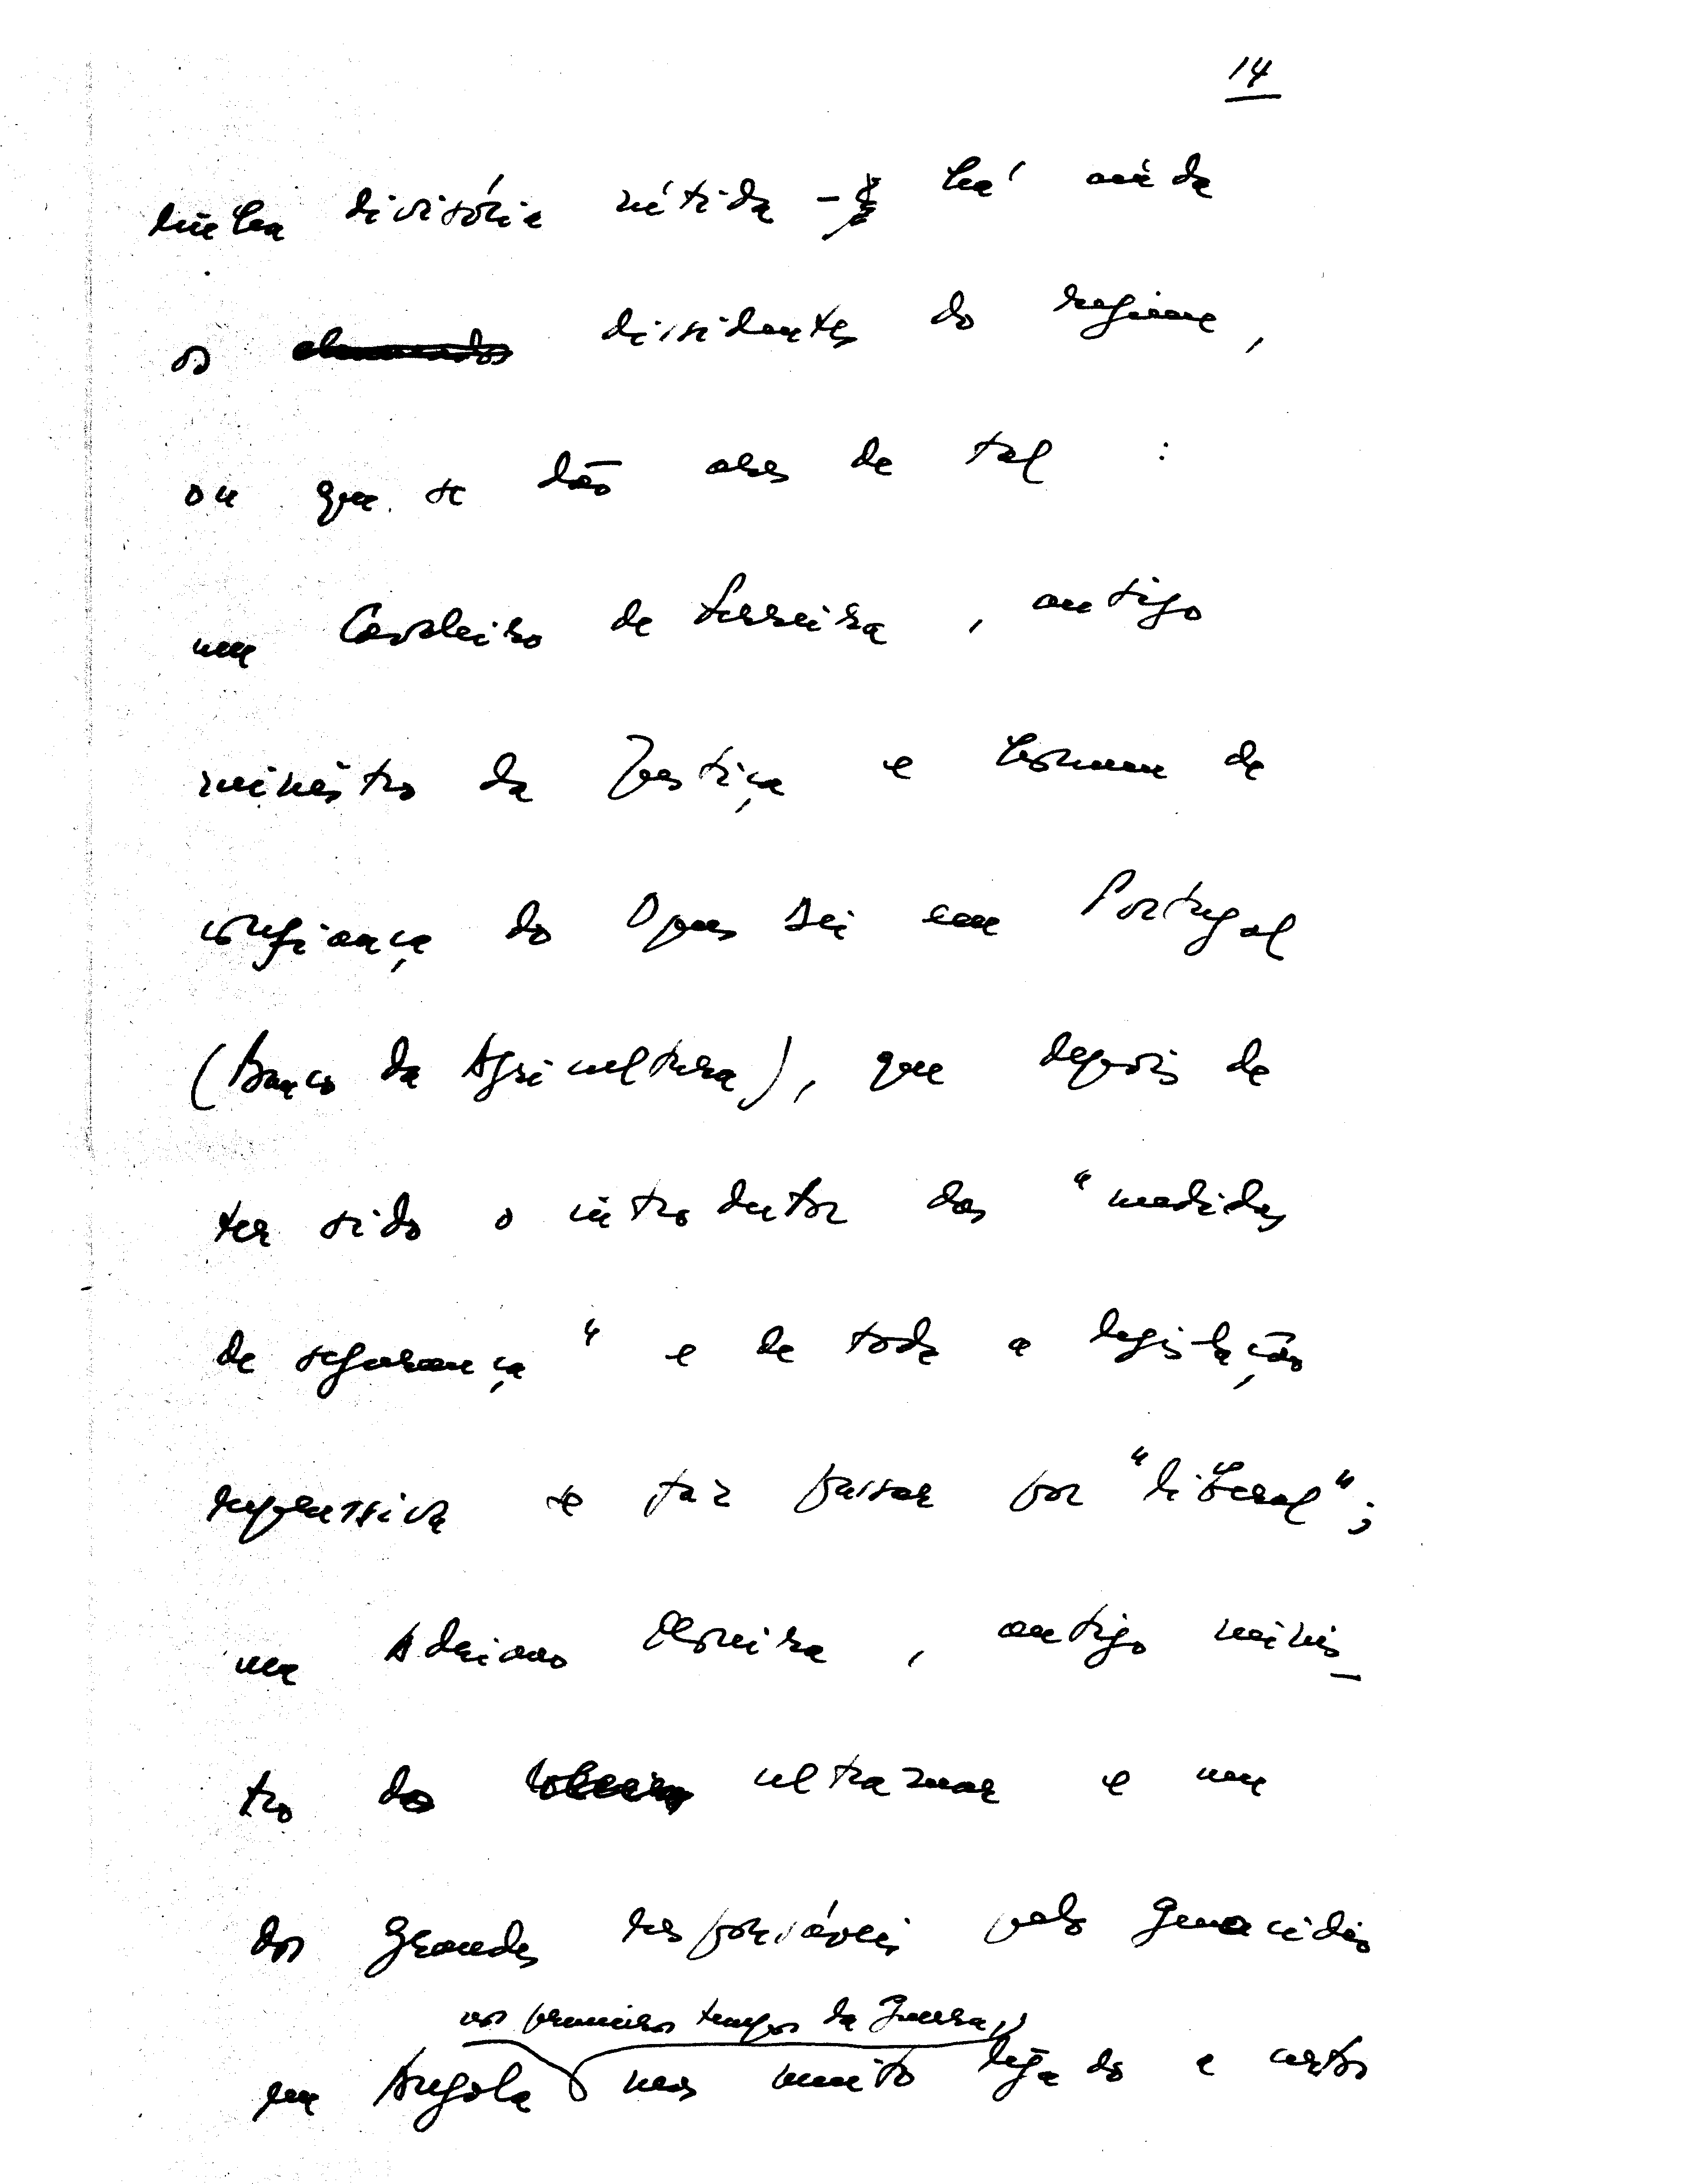 14
linha divisória nítida - há ainda
os elementos dissidentes do regime,
ou que se dão ares de tal :
um Cavaleiro de Ferreira, antigo
ministro da Justiça e homem de
confiança do Opus Dei em Portugal
(Banco da Agricultura), que depois de
ter sido o introdutor das "medidas
de segurança" e de toda a legislação
repressiva se faz passar por "liberal";
um Adriano Moreira, antigo minis-
tro do ultramar e um
dos grandes responsáveis pelo genocídio
nos primeiros tempos da guerra,
em Angola mas muito ligado a certos